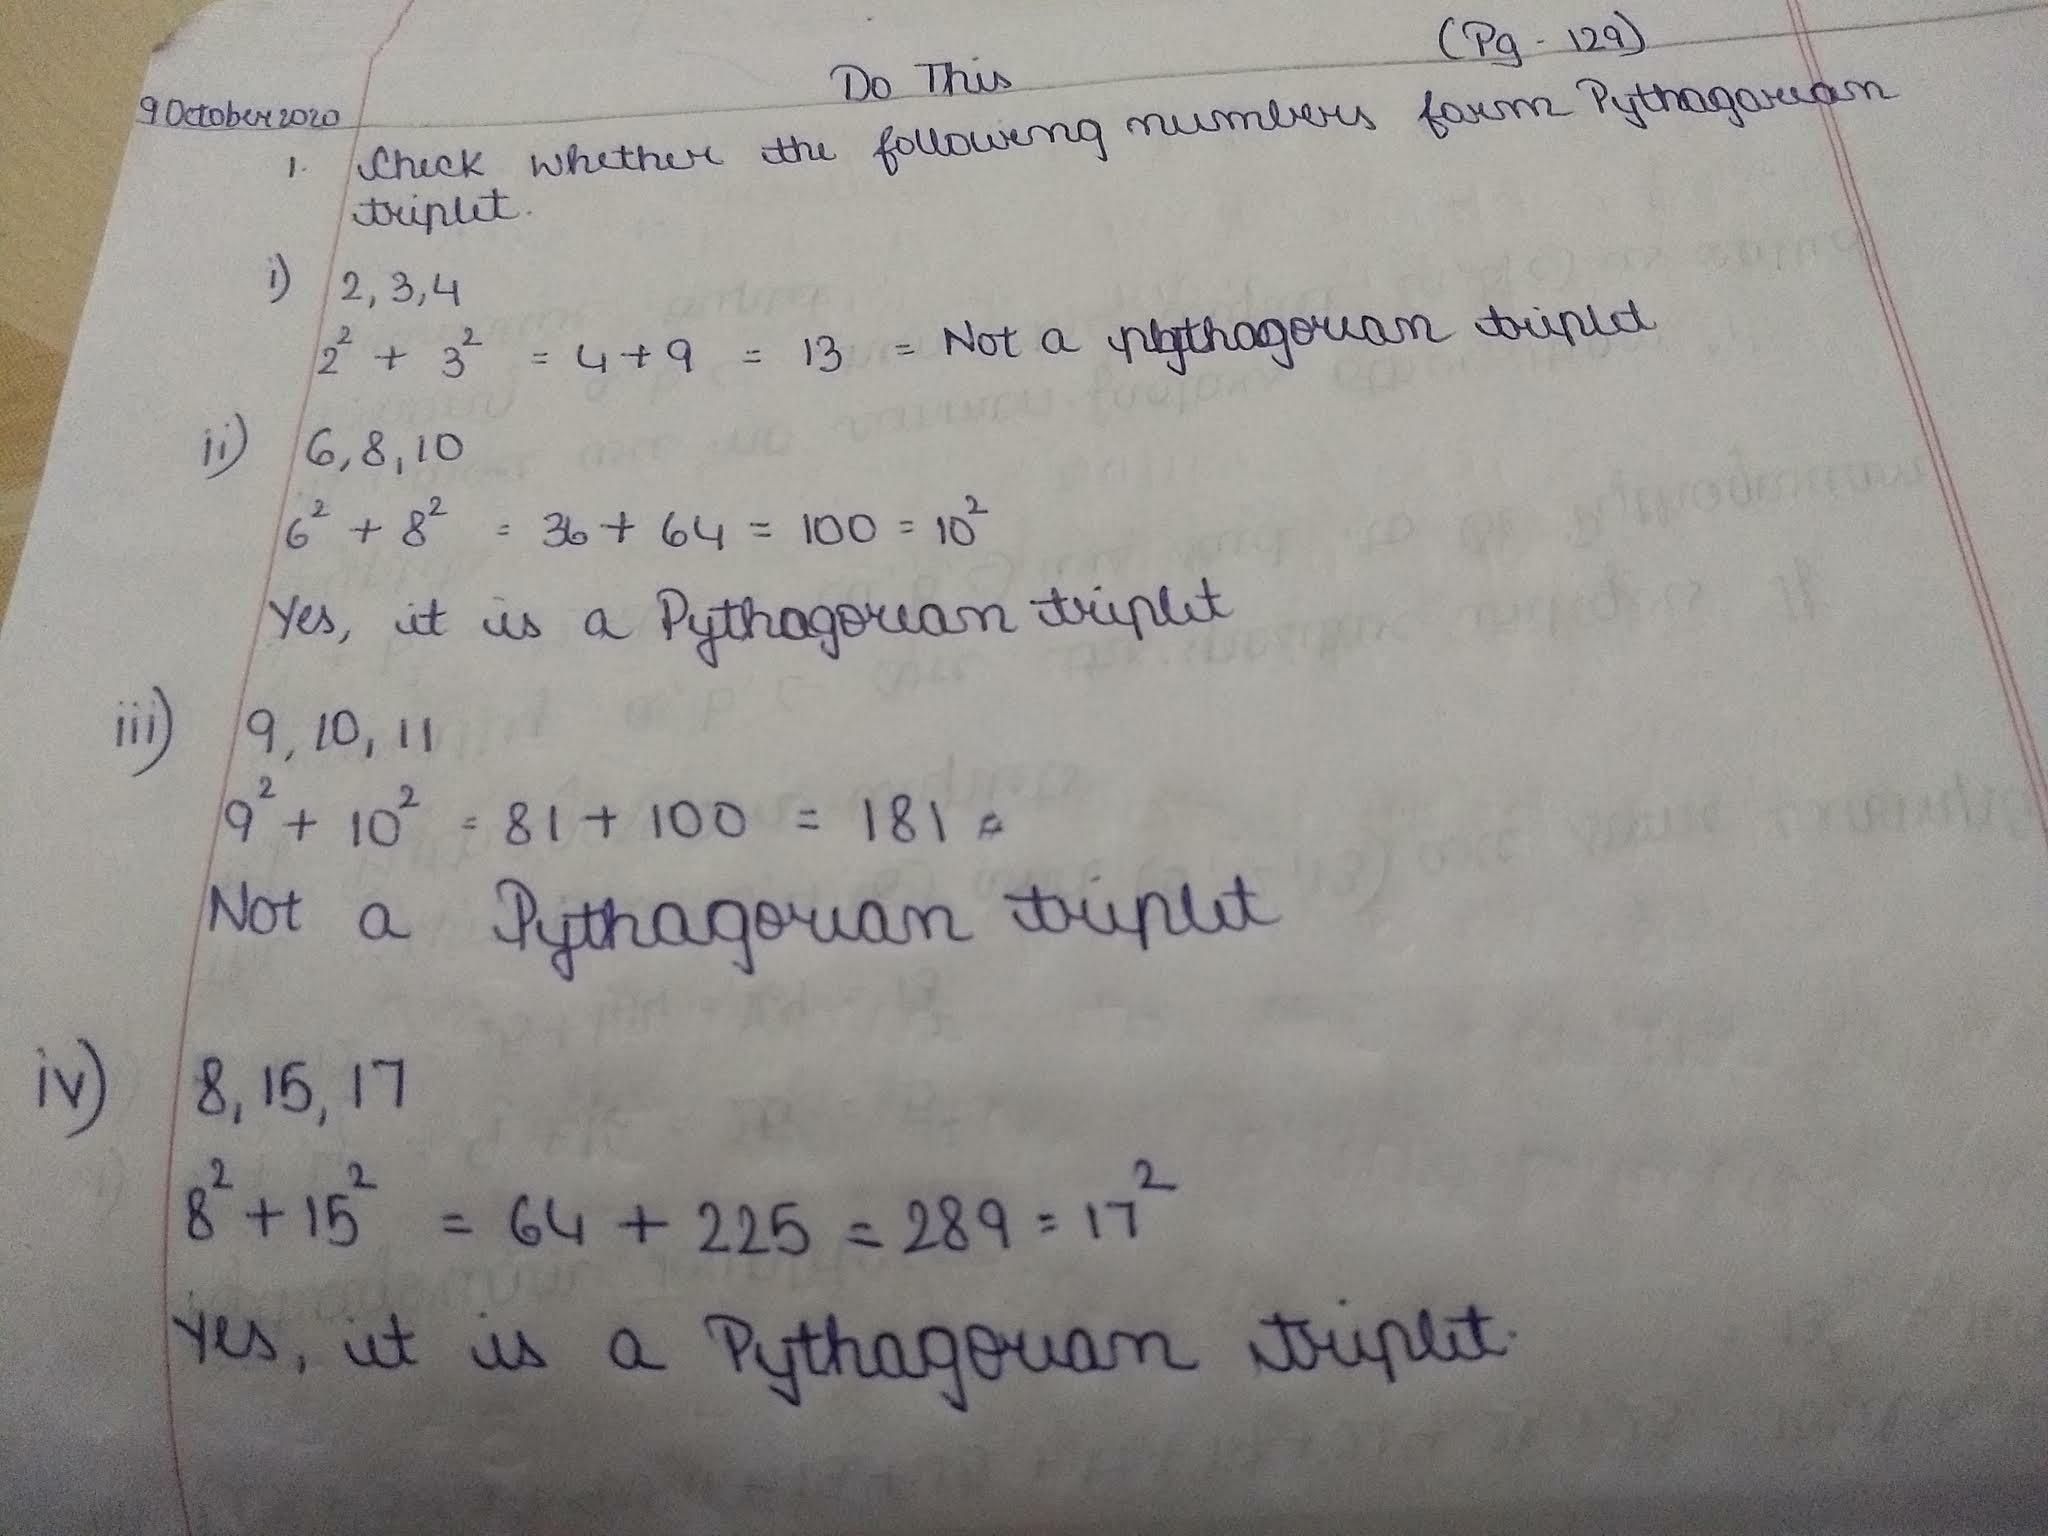 (Pg - 129)
Do This
9 October 2020
1. Check whether the following numbers form Pythagorean
triplet.
i) 2, 3, 4
2² + 3² = 4 + 9 = 13 = Not a pythagorian triplet
ii) 6, 8, 10
6² + 8² = 36 + 64 = 100 = 10²
Yes, it is a Pythagorean triplet
iii) 9, 10, 11
9² + 10² = 81 + 100 = 181 =
Not a Pythagorian triplet
iv) 8, 15, 17
8² + 15² = 64 + 225 = 289 = 17²
Yes, it is a Pythagorian triplet.